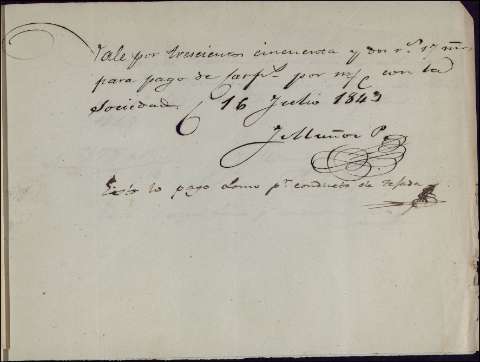 Vale por trescientos cincuenta y dos rs
para pago de por con la
Sociedad. 16 Julio 1843
JMuñoz P.
lo pago como pr conducto de Tejada